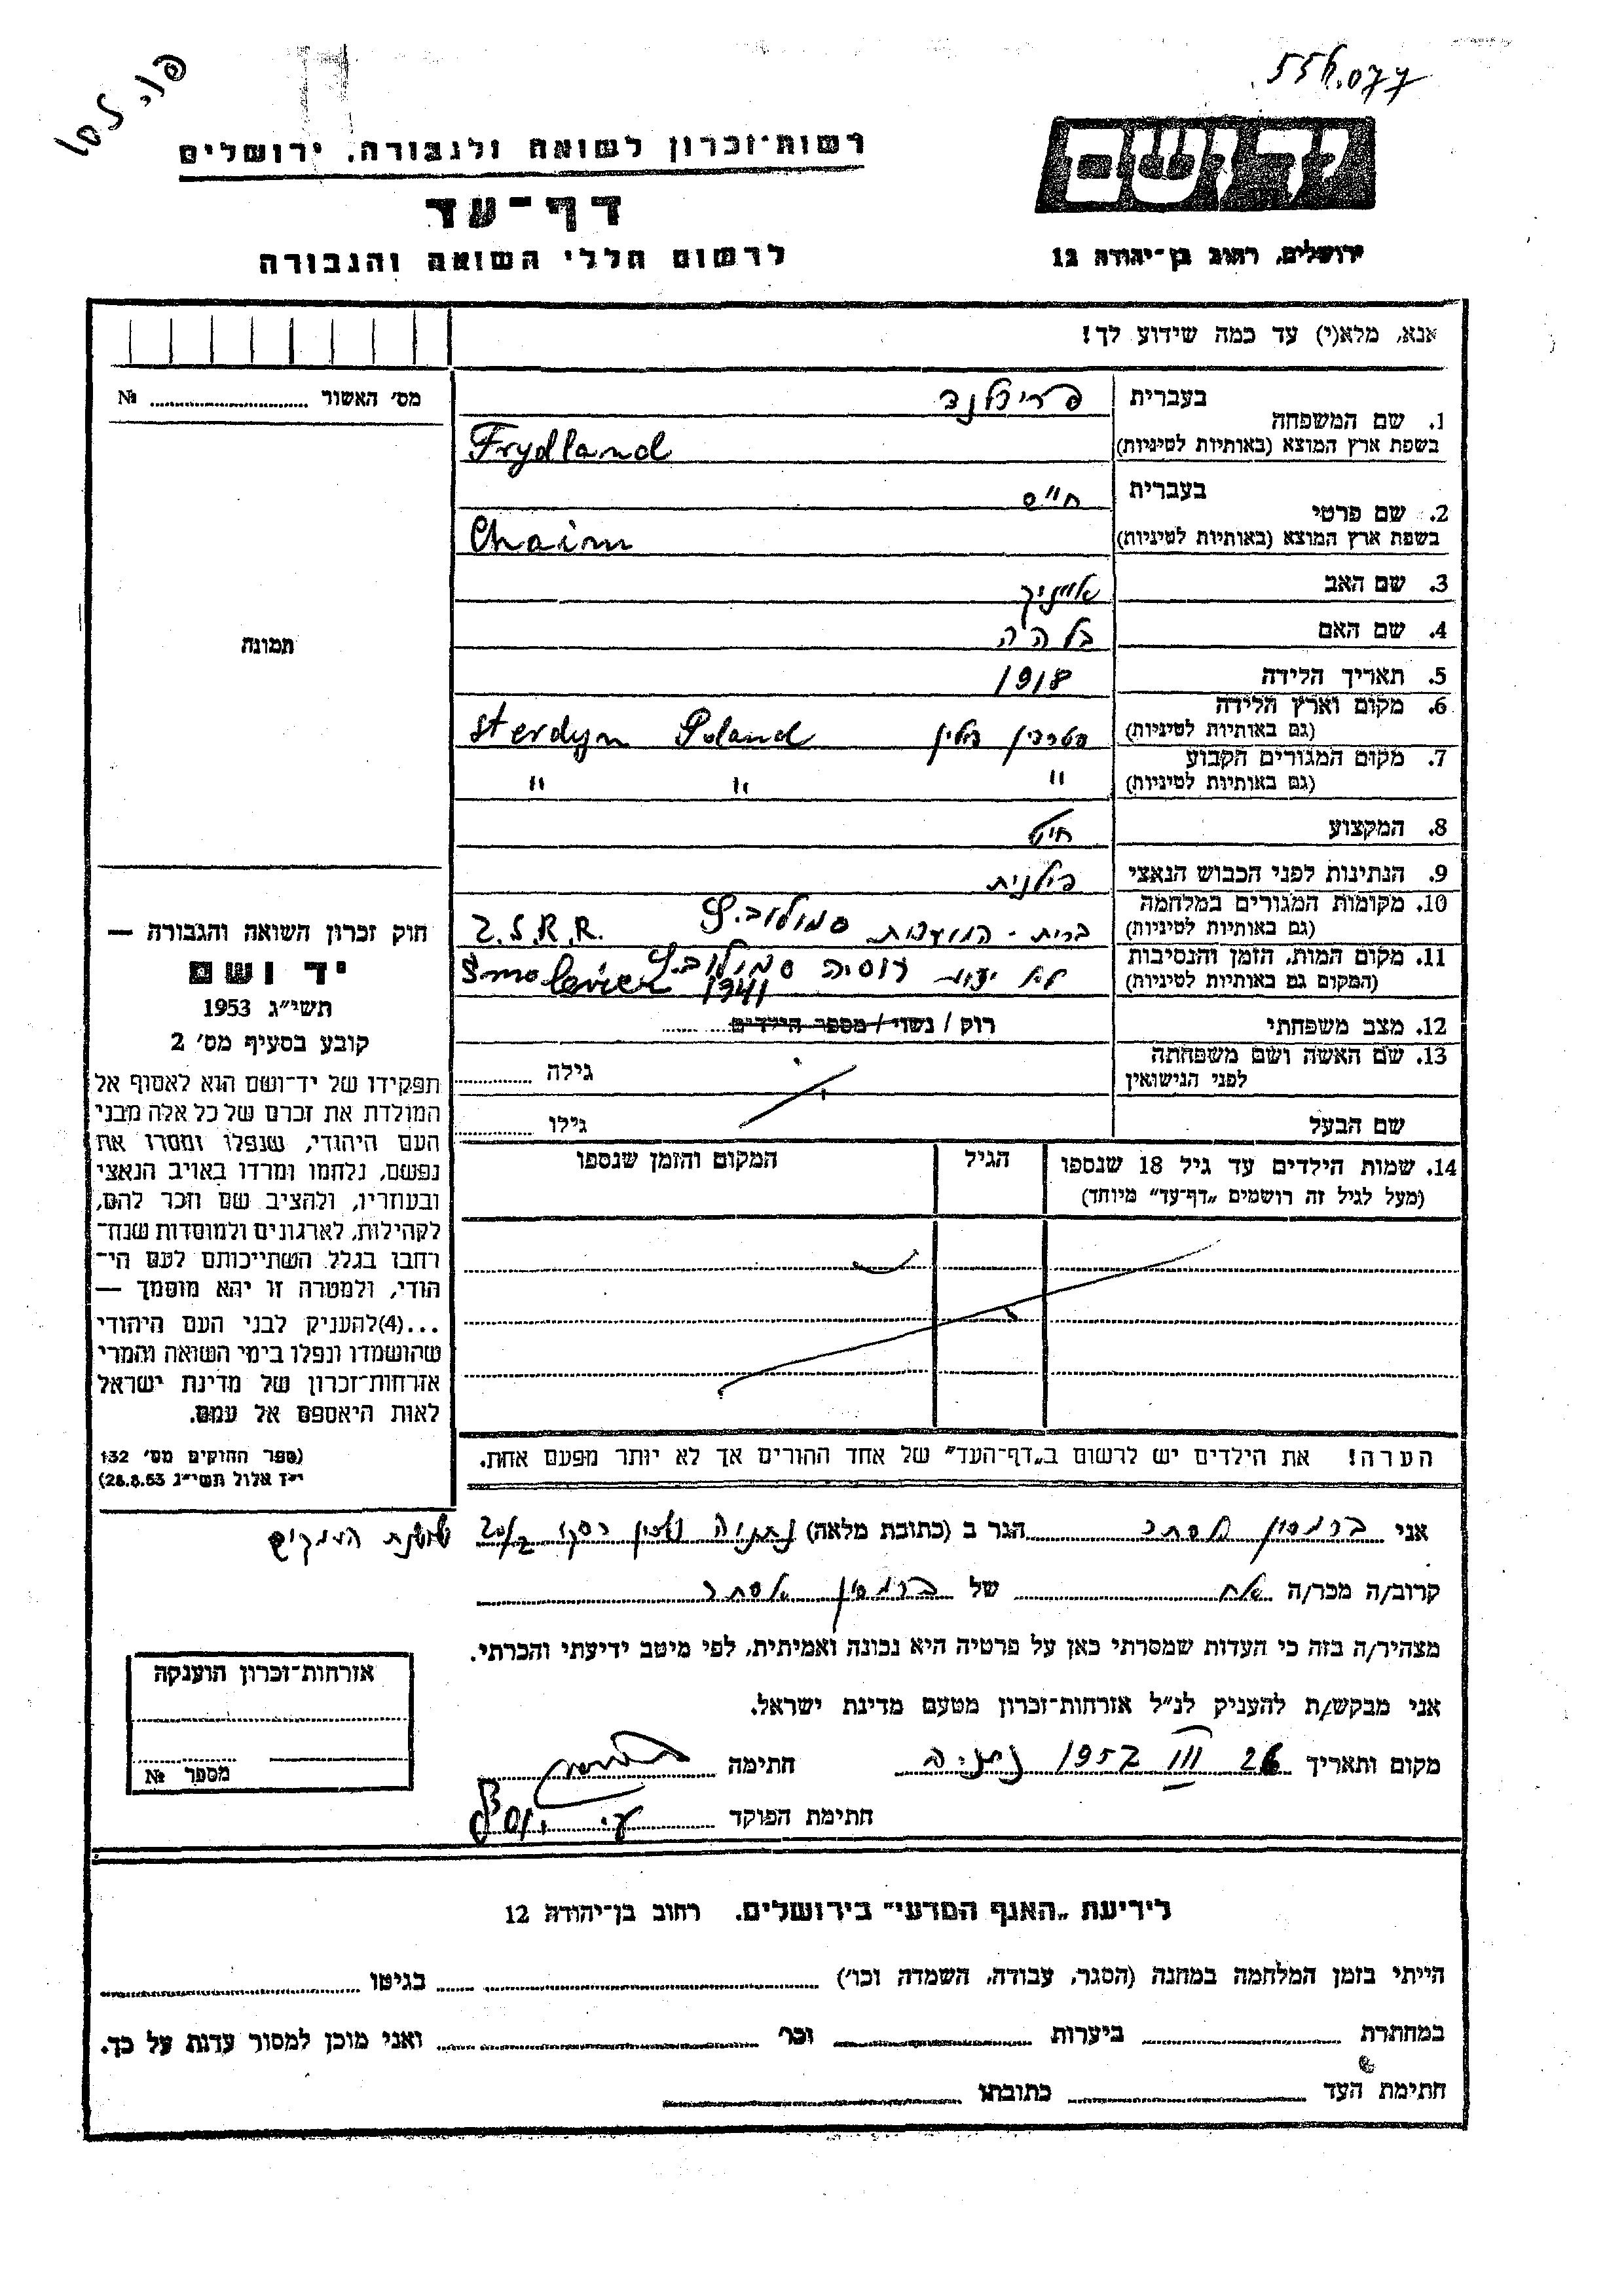 556.077
רשות־זכרון לשואה ולגבורה, ירושלים
דף־עד
לרשום חללי השואה והגבורה
יד ושם
ירושלים, רחוב בן־יהודה 12
אנא, מלא(י) עד כמה שידוע לך!
מס' האשור № 
1. שם המשפחה
בעברית פרידלנד
בשפת ארץ המוצא (באותיות לטיניות) Frydland
2. שם פרטי
בעברית חיים
בשפת ארץ המוצא (באותיות לטיניות) Chaim
3. שם האב
4. שם האם בלהה
5. תאריך הלידה 1918
6. מקום וארץ הלידה
(גם באותיות לטיניות) סטרדין פולין Sterdyn Poland
7. מקום המגורים הקבוע
(גם באותיות לטיניות) " " "
8. המקצוע חייט
9. הנתינות לפני הכבוש הנאצי פולנית
10. מקומות המגורים במלחמה
(גם באותיות לטיניות) ברית - המועצות Z.S.R.R.
11. מקום המות, הזמן והנסיבות
(המקום גם באותיות לטיניות) לא ידוע רוסיה 1941
12. מצב משפחתי רוק / נשוי / מספר הילדים
13. שם האשה ושם משפחתה
לפני הנישואין גילה
שם הבעל גילו
14. שמות הילדים עד גיל 18 שנספו
(מעל לגיל זה רושמים „דף־עד" מיוחד)
הגיל
המקום והזמן שנספו
הערה! את הילדים יש לרשום ב„דף־העד" של אחד ההורים אך לא יותר מפעם אחת.
תמונה
חוק זכרון השואה והגבורה —
יד ושם
תשי"ג 1953
קובע בסעיף מס' 2
תפקידו של יד־ושם הוא לאסוף אל
המולדת את זכרם של כל אלה מבני
העם היהודי, שנפלו ומסרו את
נפשם, נלחמו ומרדו באויב הנאצי
ובעוזריו, ולהציב שם וזכר להם,
לקהילות, לארגונים ולמוסדות שנח־
רחבו בגלל השתייכותם לעם הי־
הודי, ולמטרה זו יהא מוסמך —
...(4)להעניק לבני העם היהודי
שהושמדו ונפלו בימי השואה והמרי
אזרחות־זכרון של מדינת ישראל
לאות היאספם אל עמם.
(ספר החוקים מס' 132
י"ז אלול תשי"ג 28.8.53)
אני אסתר הגר ב (כתובת מלאה) נתניה 20/2
קרוב/ה מכר/ה אח של אסתר
מצהיר/ה בזה כי העדות שמסרתי כאן על פרטיה היא נכונה ואמיתית, לפי מיטב ידיעתי והכרתי.
אני מבקש/ת להעניק לנ"ל אזרחות־זכרון מטעם מדינת ישראל.
מקום ותאריך 26 III 1957 נתניה חתימה
חתימת הפוקד
אזרחות־זכרון הוענקה
מספר №
לידיעת „האגף המדעי" בירושלים. רחוב בן־יהודה 12
הייתי בזמן המלחמה במחנה (הסגר, עבודה, השמדה וכו') בגיטו
במחתרת ביערות וכו' ואני מוכן למסור עדות על כך.
חתימת העד כתובתו